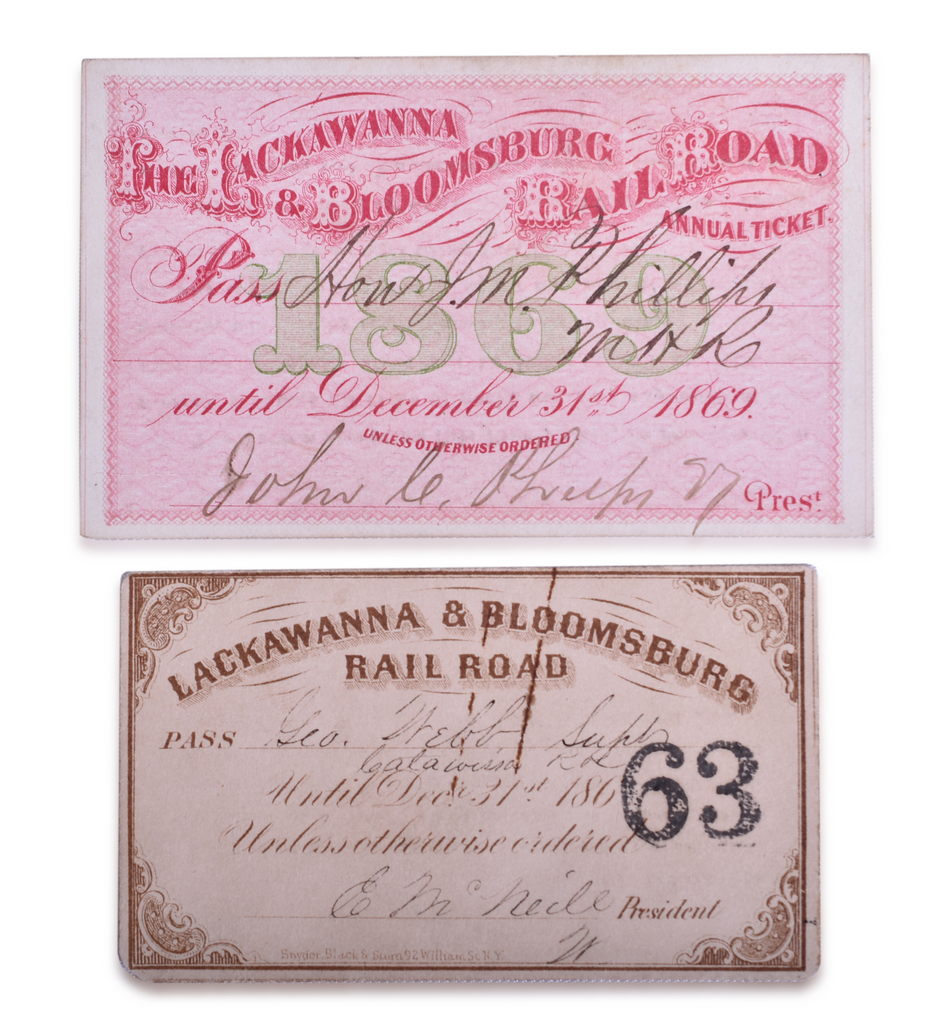 THE LACKAWANNA
& BLOOMSBURG
RAIL ROAD
ANNUAL TICKET.
1869
Pass Hon J. M. Phillips
M H R
until December 31st 1869.
UNLESS OTHERWISE ORDERED
John C. Phelps Prest
LACKAWANNA & BLOOMSBURG
RAIL ROAD
PASS Geo. Webb Supt
Catawissa R R
Until Dec. 31st 186
63
Unless otherwise ordered
E McNeill President
Snyder, Black & Sturn 92 William St. N.Y.